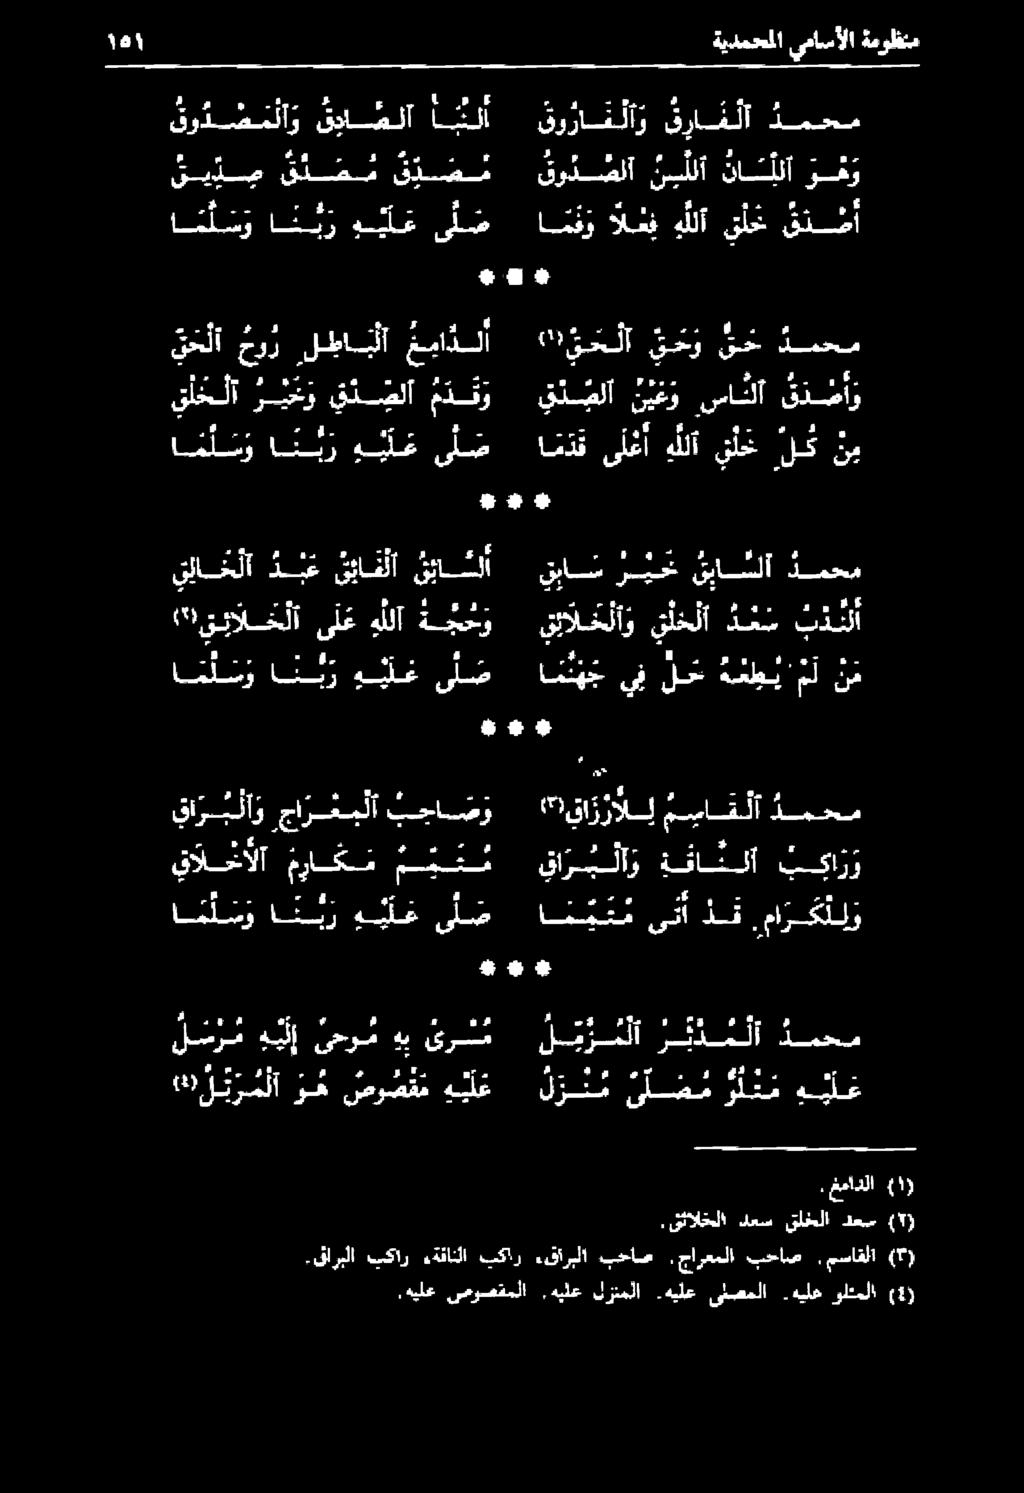 منظومة الأسامي المحمدية ١٥١
محمدُ ٱلْفَارِقُ وَٱلْفَارُوقُ أَلنَّبَأُ ٱلصَّادِقُ وَٱلْمَصْدُوقُ
وَهْوَ ٱللِّسَانُ ٱللَّسِنُ ٱلصَّدُوقُ مُصَدِّقٌ مُصَدَّقٌ صِدِّيقُ
أَصْدَقُ خَلْقِ ٱللهِ فِعْلاً وَفَمَا صَلَّى عَلَيْهِ رَبُّنَا وَسَلَّمَا
* * *
محمدٌ حَقٌّ وَحَقُّ ٱلْحَقِّ(١) أَلدَّامِغُ ٱلْبَاطِلِ رُوحُ ٱلْحَقِّ
وَأَصْدَقُ ٱلنَّاسِ وَعَيْنُ ٱلصِّدْقِ وَقَدَمُ ٱلصِّدْقِ وَخَيْرُ ٱلْخَلْقِ
مِنْ كُلِّ خَلْقِ ٱللهِ أَعْلَى قَدَمَا صَلَّى عَلَيْهِ رَبُّنَا وَسَلَّمَا
* * *
محمدُ ٱلسَّابِقُ خَيْرُ سَابِقِ أَلسَّائِقُ ٱلْفَائِقُ عَبْدُ ٱلْخَالِقِ
أَلنَّدْبُ سَعْدُ ٱلْخَلْقِ وَٱلْخَلاَئِقِ وَحُجَّةُ ٱللهِ عَلَى ٱلْخَلاَئِقِ(٢)
مَنْ لَمْ يُطِعْهُ حَلَّ فِي جَهَنَّمَا صَلَّى عَلَيْهِ رَبُّنَا وَسَلَّمَا
* * *
محمدُ ٱلْقَاسِمُ لِلأَرْزَاقِ(٣) وَصَاحِبُ ٱلْمِعْرَاجِ وَٱلْبُرَاقِ
وَرَاكِبُ ٱلنَّاقَةِ وَٱلْبُرَاقِ مُتَمِّمٌ مَكَارِمَ ٱلأَخْلاَقِ
وَلِلْكِرَامِ قَدْ أَتَى مُتَمِّمَا صَلَّى عَلَيْهِ رَبُّنَا وَسَلَّمَا
* * *
محمدُ ٱلْمُدَّثِّرُ ٱلْمُزَّمِّلُ مُسْرىً بِهِ مُوحىً إِلَيْهِ مُرْسَلُ
عَلَيْهِ مَتْلُوٌّ مُصَلّىً مُنْزَلُ عَلَيْهِ مَقْصُوصٌ هُوَ ٱلْمُرَتِّلُ(٤)
(١) الدامغ.
(٢) سعد الخلق سعد الخلائق.
(٣) القاسم. صاحب المعراج. صاحب البراق، راكب الناقة، راكب البراق.
(٤) المتلو عليه. المصلى عليه. المنزل عليه. المقصوص عليه.